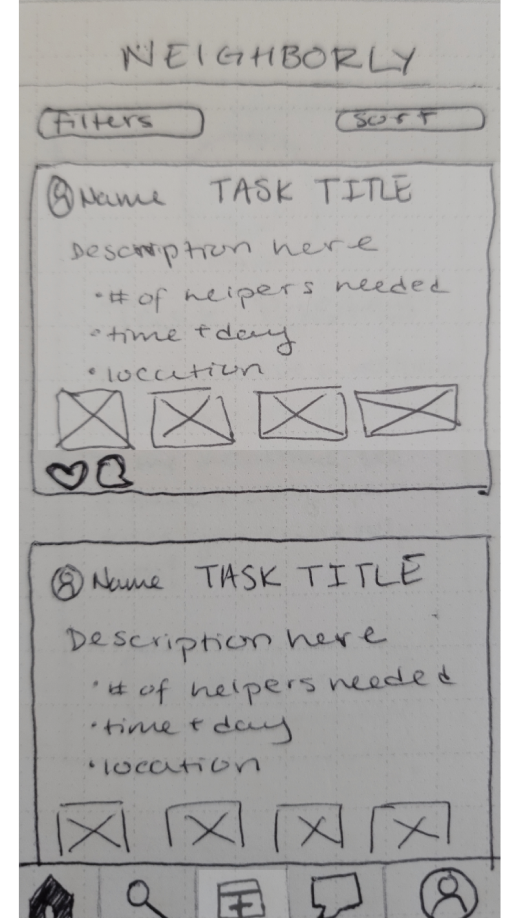 NEIGHBORLY
Filters Sort
Name TASK TITLE
Description here
• # of helpers needed
• time + day
• location
Name TASK TITLE
Description here
• # of helpers needed
• time + day
• location